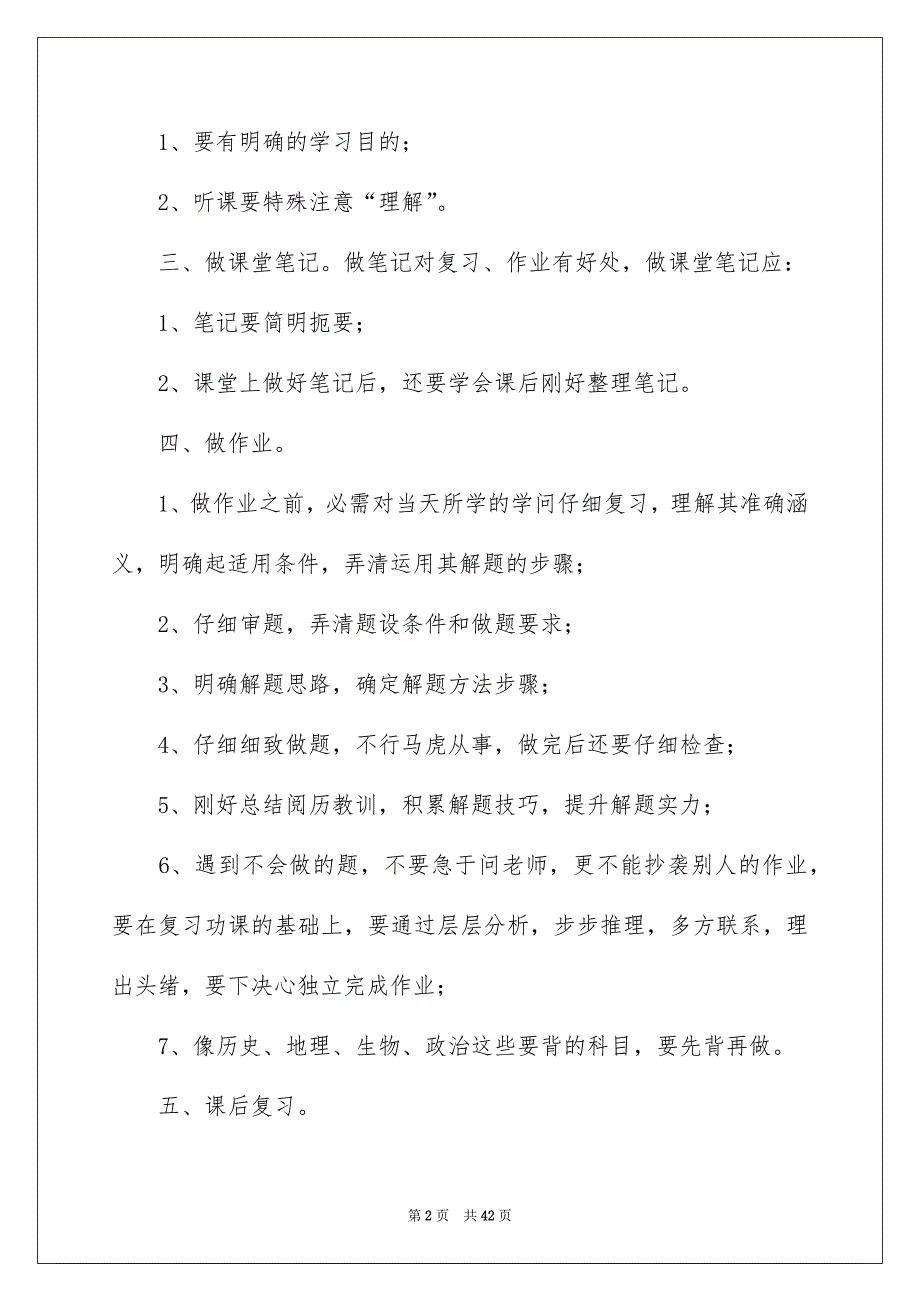 1、要有明确的学习目的；
2、听课要特殊注意“理解”。
三、做课堂笔记。做笔记对复习、作业有好处，做课堂笔记应：
1、笔记要简明扼要；
2、课堂上做好笔记后，还要学会课后刚好整理笔记。
四、做作业。
1、做作业之前，必需对当天所学的学问仔细复习，理解其准确涵
义，明确起适用条件，弄清运用其解题的步骤；
2、仔细审题，弄清题设条件和做题要求；
3、明确解题思路，确定解题方法步骤；
4、仔细细致做题，不行马虎从事，做完后还要仔细检查；
5、刚好总结阅历教训，积累解题技巧，提升解题实力；
6、遇到不会做的题，不要急于问老师，更不能抄袭别人的作业，
要在复习功课的基础上，要通过层层分析，步步推理，多方联系，理
出头绪，要下决心独立完成作业；
7、像历史、地理、生物、政治这些要背的科目，要先背再做。
五、课后复习。
第 2 页 共 42 页